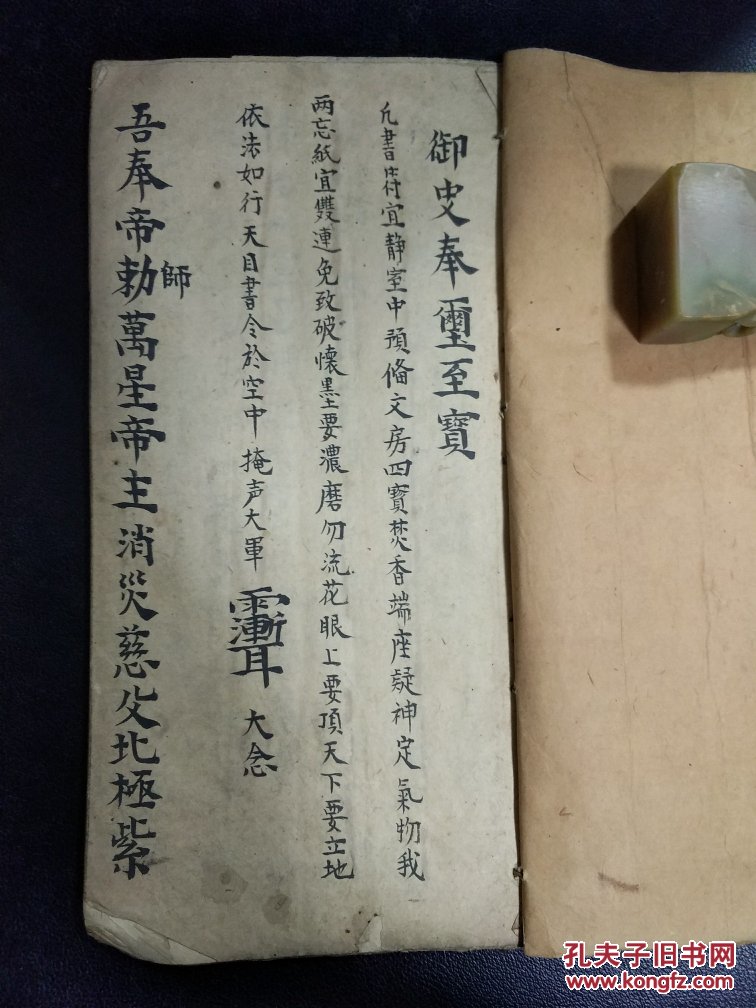 御史奉璽至寶
凢書符宜静室中預俻文房四寳焚香端座疑神定氣物我
两忘紙宜雙連免致破懐墨要濃磨勿流花眼上要頂天下要立地
依法如行天目書令於空中掩声大軍 大念
吾奉帝勅師萬星帝主消災慈父北極紫
孔夫子旧书网
www.kongfz.com